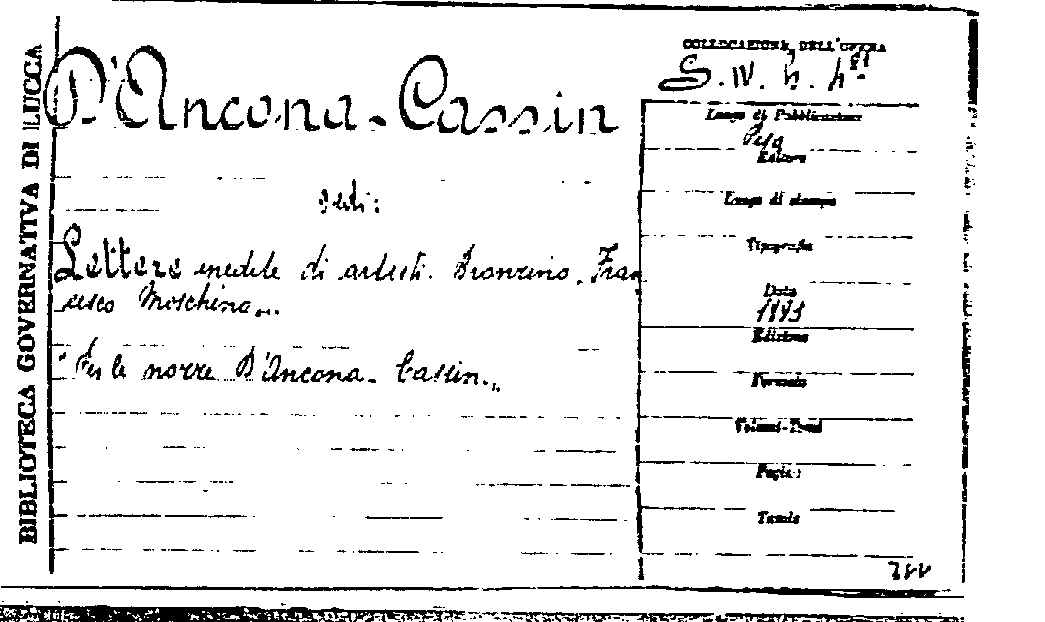 BIBLIOTECA GOVERNATIVA DI LUCCA
D'Ancona-Cassin
vedi:
Lettere inedite di artisti. Bronzino. Fran
cesco Moschino...
"Per le nozze D'Ancona-Cassin."
COLLOCAZIONE DELL'OPERA
S. IV. h.
Luogo di Pubblicazione
Pisa
Editore
Luogo di stampa
Tipografia
Data
1893
Edizione
Formato
Volumi-Tomi
Pagine
Tavole